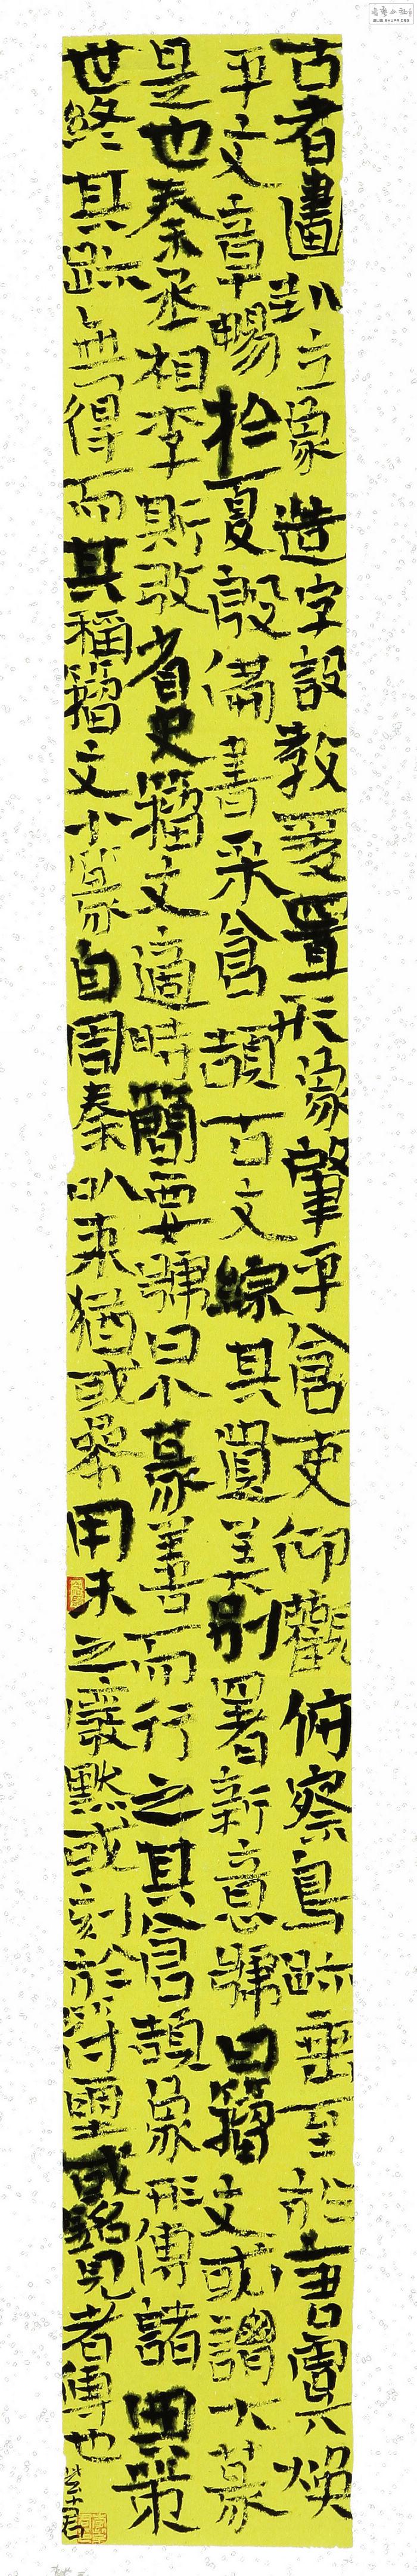 古者畫卦立象造字設教爰置形象肇乎倉吏仰觀俯察鳥跡垂至於唐虞煥
乎文章暢於夏殷備書采倉頡古文綜其遺美別署新意號曰籀文或謂大篆
是也秦丞相李斯改省史籀文適時簡要號曰小篆善而行之其倉頡象形傳諸典策
世終其跡無得而其稱籀文小篆自周秦以來猶或參用未之廢黜或刻於符璽或銘見者傳也